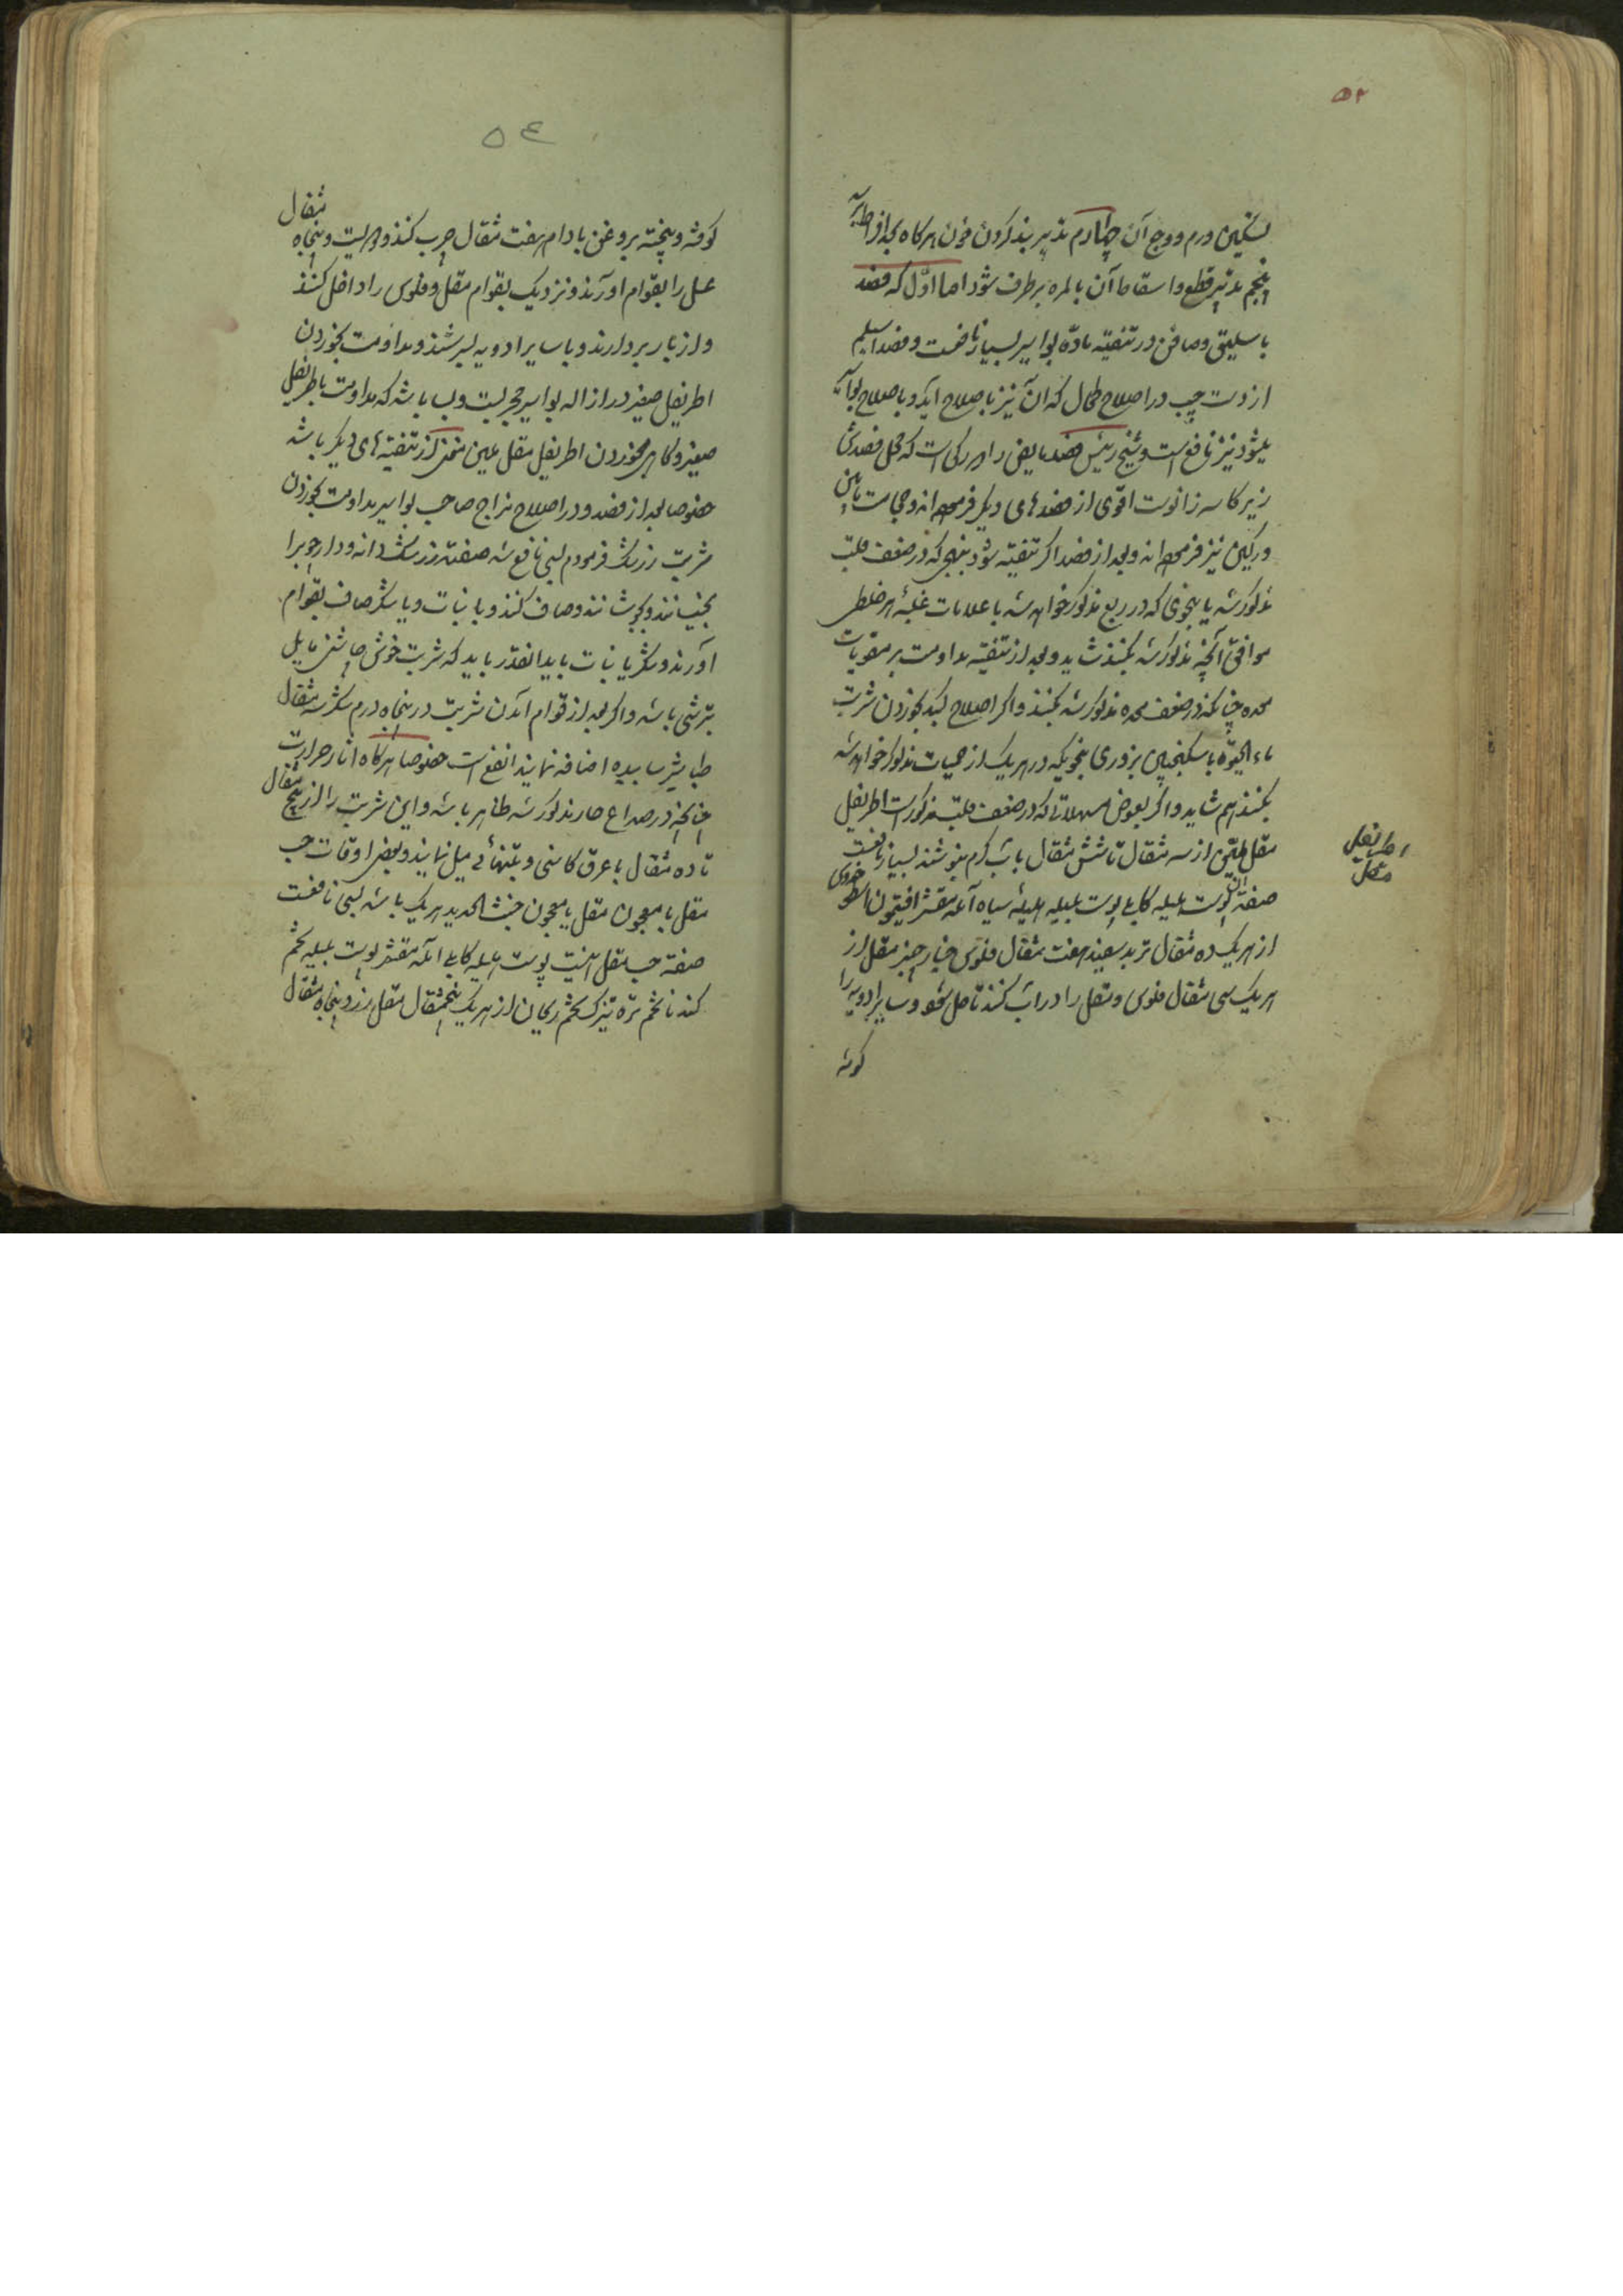 ۵۳
تسکین ورم و وجع آن چهارم تدبیر بند کردن خون هرکاه بافراط آید
پنجم تدبیر قطع و اسقاط آن بالمره برطرف شود اما اوّل که فصد
باسلیق و صافن در تنقیه مادّه بواسیر بسیار نافعست و فصد اسیلم
از دست چپ در اصلاح طحال که آن نیز باصلاح آید و باصلاح بواسیر
میشود نیز نافع است و شیخ رئیس فصد مابض را و ان رکی است که محل فصدش
زیر کاسه زانوست اقوی از فصدهای دیکر فرموده‌اند و حجامت مابین
ورکین نیز فرموده‌اند و بعد از فصد اکر تنقیه شود بنهجی که در ضعف قلب
مذکور شد یا بنحوی که در ربع مذکور خواهد شد با علامات غلبهٔ هر خلطی
موافق آنچه مذکور شد بکنند شاید و بعد از تنقیه مداومت بر مقویات
معده چنانکه در ضعف معده مذکور شد بکنند و اکر اصلاح کبد بخوردن شربت
ماء الحیوة با سکنجبین بزوری بنحویکه در هر یک از حمیات مذکور خواهد شد
بکنند هم شاید و اکر بعوض مسهلاتی که در ضعف قلب مذکور است اطریفل
مقل ملیّن از سه مثقال تا شش مثقال باب کرم بنوشند بسیار نافعست
صفة آن پوست هلیله کابلی پوست بلیله هلیلهٔ سیاه آمله مقشر افتیمون اسطوخودوس
از هر یک ده مثقال تربد سفید هفت مثقال فلوس خیار چنبر مقل ازرق
هر یک سی مثقال فلوس و مقل را در آب کنند تا حل شود و سایر ادویه را
کوفته
اطریفل
مقل
۵۴
کوفته و پخته بروغن بادام هفت مثقال چرب کنند و دویست و پنجاه مثقال
عسل را بقوام اورند و نزدیک بقوام مقل و فلوس را داخل کنند
و از بار بردارند و با سایر ادویه بسرشند و مداومت بخوردن
اطریفل صغیر در ازاله بواسیر مجربست و بسا باشد که مداومت باطریفل
صغیر و کاهی بخوردن اطریفل مقل ملین مغنی از تنقیه‌های دیکر باشد
خصوصا بعد از فصد و در اصلاح مزاج صاحب بواسیر مداومت بخوردن
شربت زرشک فرمودم بسی نافع شد صفته زرشک دانه‌ودار چوب را
بخیسانند و بجوشانند و صاف کنند و با نبات و یا شکر صاف بقوام
آورند و شکر یا نبات باید انقدر باید که شربت خوش چاشنی مایل
بترشی باشد و اکر بعد از قوام آمدن شربت در پنجاه درم شکر سه مثقال
طباشیر ساییده اضافه نمایند انفع است خصوصا هرکاه اثار حرارت
چنانچه در صداع حار مذکور شد ظاهر باشد و این شربت را از پنج مثقال
تا ده مثقال با عرق کاسنی و بتنهائی میل نمایند و بعضی اوقات حب
مقل یا معجون مقل یا معجون خبث الحدید هر یک باشد بسی نافعست
صفة حب مقل اینست پوست هلیله کابلی آمله مقشر پوست بلیله تخم
کندنا تخم تره تیزک تخم ریحان از هر یک پنجمثقال مقل ازرق پنجاه مثقال